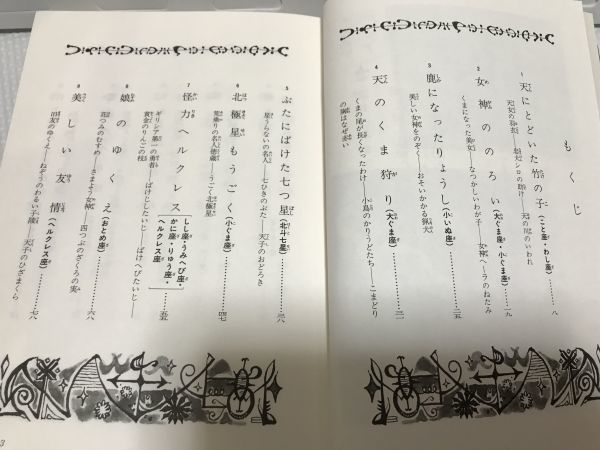 もくじ
1 天にとどいた竹の子(こと座・わし座)………八
2 女神ののろい(大ぐま座・小ぐま座)………一九
くまになった美女——なつかしいわが子——女神ヘーラのねたみ
3 鹿になったりょうし(小いぬ座)………二五
美しい女神をのぞく——おそいかかる猟犬
4 天のくま狩り(大ぐま座)………三一
くまの尾が長くなったわけ——小鳥のかりうどたち——こまどり
の胸はなぜ赤い
5 ぶたにばけた七つ星(北斗七星)………三八
星うらないの名人——七ひきのぶた——天子のおどろき
6 北極星もうごく(小ぐま座)………四七
——うごく北極星
7 怪力ヘルクレス(しし座・うみへび座・かに座・りゅう座・ヘルクレス座)………五五
ギリシア第一の勇者——ばけじしたいじ——ばけへびたいじ——
黄金のりんごの枝
8 娘のゆくえ(おとめ座)………六八
——さまよう女神——四つぶのざくろの実
9 美しい友情(ヘルクレス座)………七八
——天子のひざまくら
3